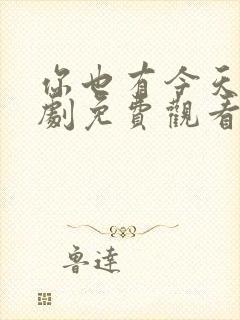 你也有今天
劇免費觀看
魯達